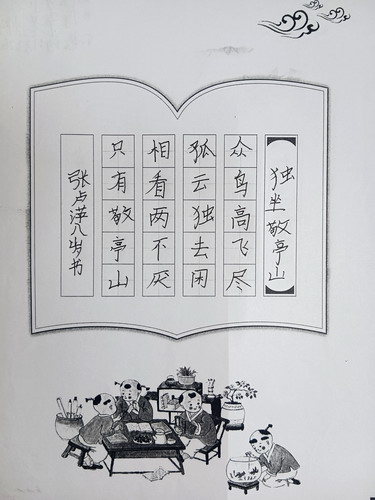 独坐敬亭山
众鸟高飞尽
狐云独去闲
相看两不厌
只有敬亭山
张卢萍八岁书